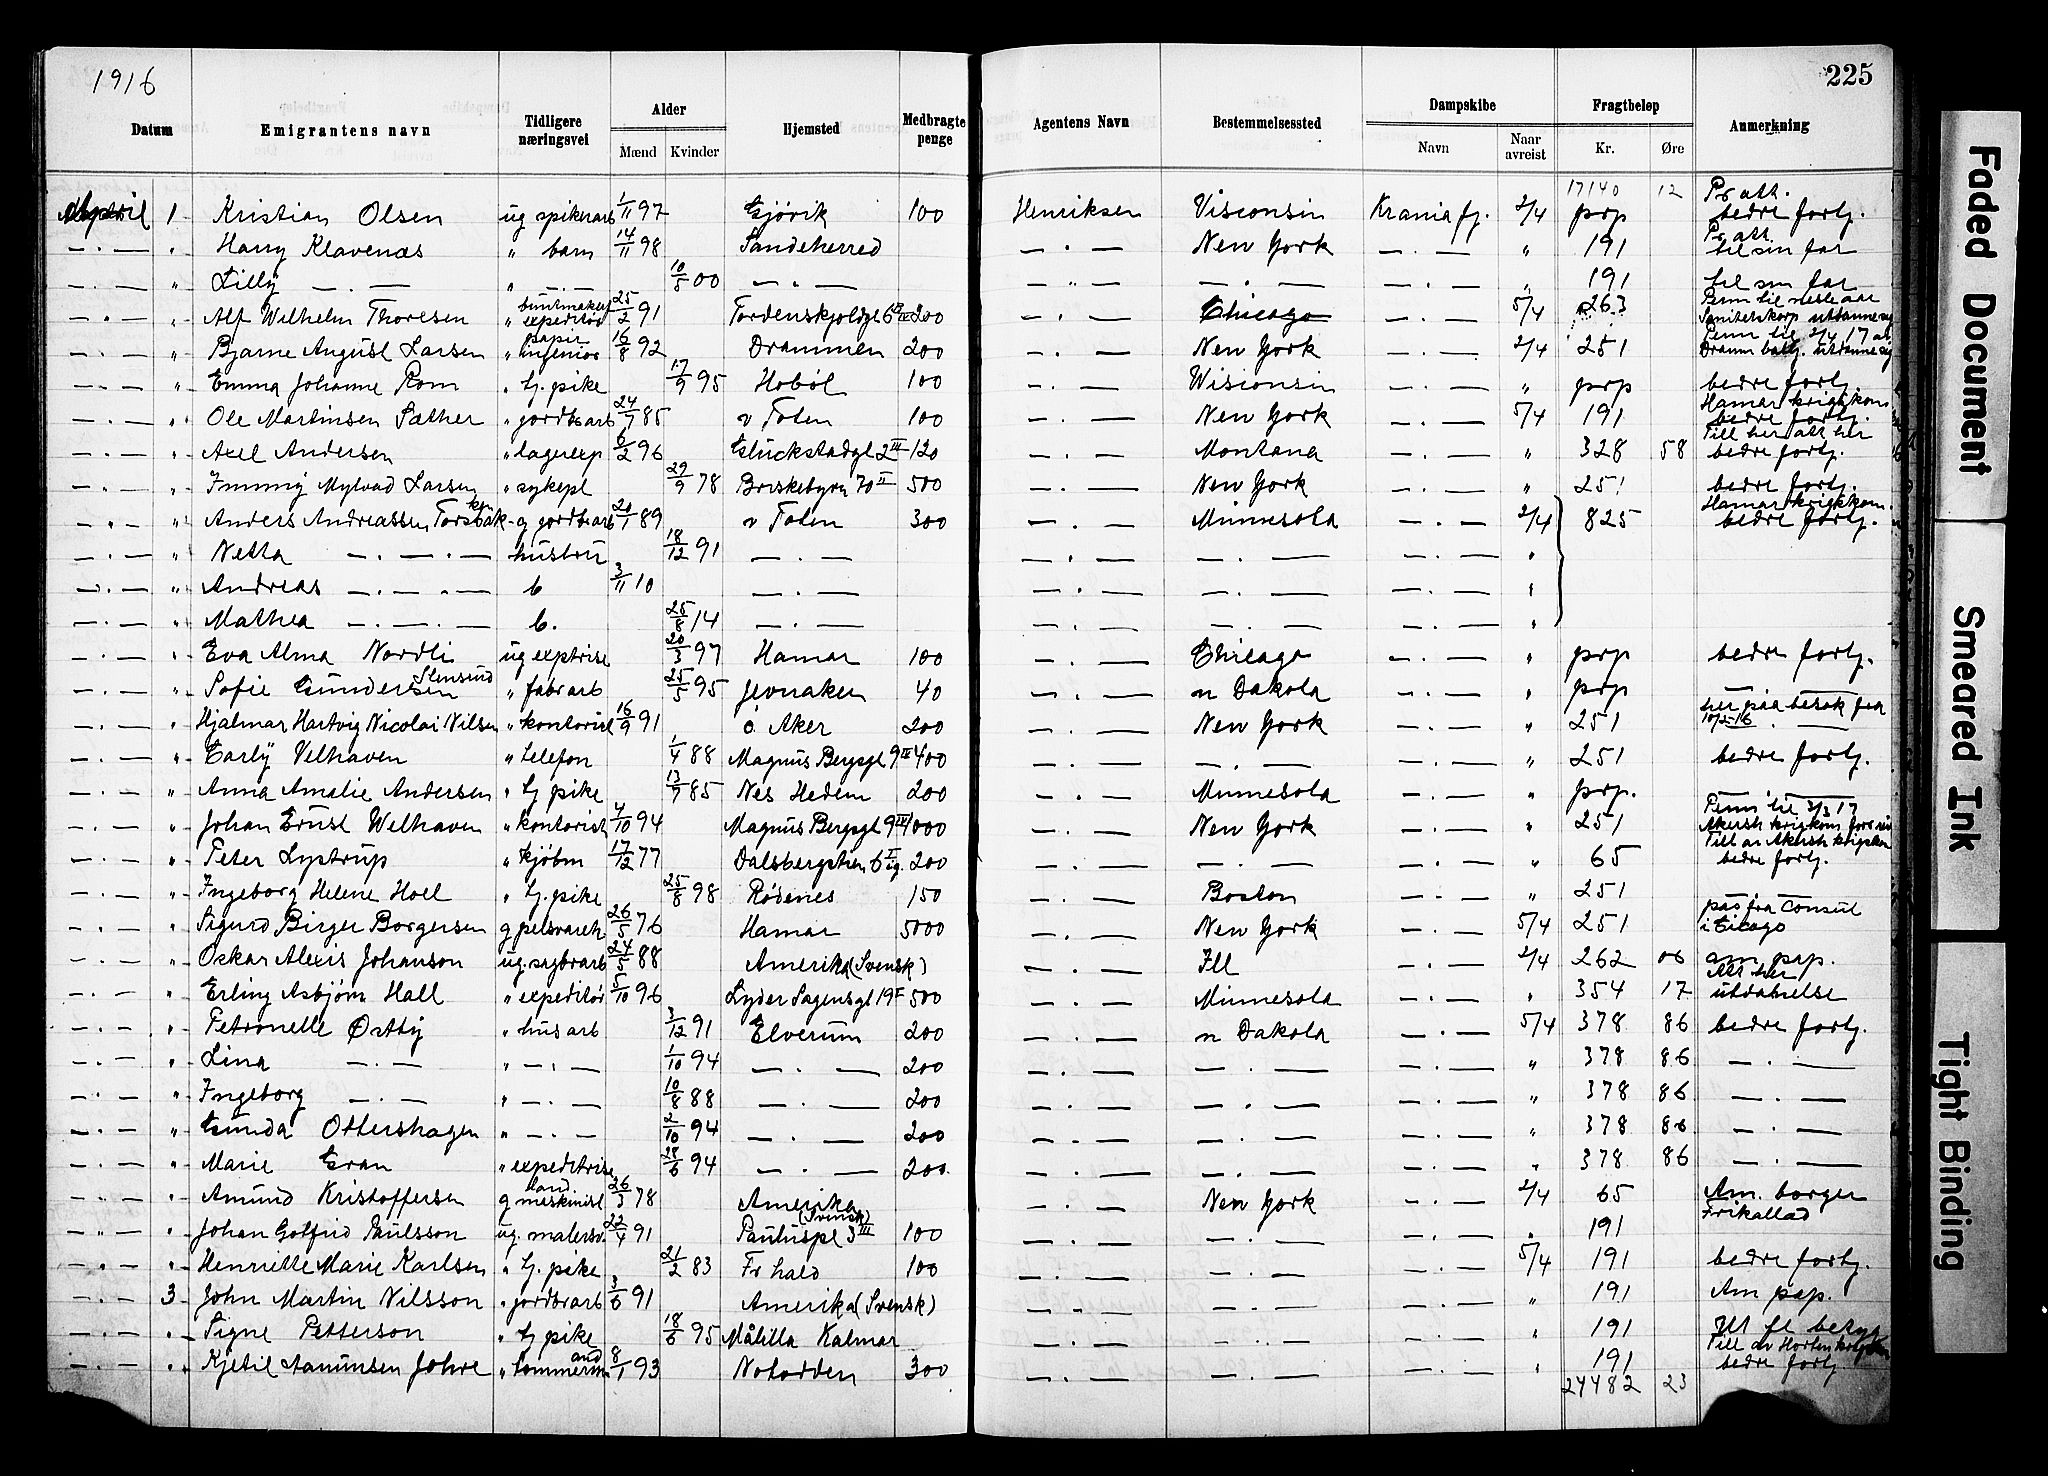 1916
225
Datum Emigrantens navn Tidligere næringsvei Alder Mænd Kvinder Hjemsted Medbragte penge Agentens Navn Bestemmelsessted Dampskibe Navn Naar avreist Fragtbeløp Kr. Øre Anmerkning
17140 12 Pr att.
April 1 Kristian Olsen ug spikerarb 1/11 97 Gjövik 100 Henriksen Visconsin Kraniafj. 2/4 prp bedre fortj.
— · — " Harry Klavenæs " barn 14/11 98 Sandeherred — · — New York — · — " 191 Pr att. til sin far
— · — " Lilly — · — " — · — 10/5 00 — · — — " — — · — — · — " 191 til sin far
— · — " Alf Wilhelm Thoresen " buntmaker expeditör 25/2 91 Tordenskjoldgt 200 — · — Chicago — · — 5/4 263 Perm til neste aar Sanitetskorp utdanne sig
— · — " Bjarne August Larsen " papir ingeniör 16/8 92 Drammen 200 — · — New York — · — 2/4 251 Perm til 2/4 17 Dramm batlj. utdanne sig
— · — " Emma Johanne Rom " tj. pike 17/9 95 Hobøl 100 — · — Wisconsin — · — " prp bedre fortj.
— · — " Ole Martinsen Sæther " jordbrarb 24/7 85 v Toten 100 — · — New York — · — 5/4 191 Hamar krigskom bedre fortj.
— · — " Axel Andersen " lagerexp 6/2 96 Glückstadgt 2 III 120 — · — Montana — · — " 328 58 Till her att her bedre fortj.
— · — " Larsen " sykepl 29/9 78 Briskebyvn 70 II 500 — · — New York — · — " 251 bedre fortj.
— · — " Anders Andreassen g jordbrarb 20/1 89 v Toten 300 — · — Minnesota — · — 2/4 825 Hamar krigskom. bedre fortj.
— · — " Netta — · — · — hustru 18/12 91 — · — — · — — · — — · — "
— · — " Andreas — · — · — b 3/11 10 — · — — · — — · — — · — "
— · — " Mathea — · — · — b. 25/8 14 — · — — · — — · — — · — "
— · — " Eva Alma Nordli ug exptrise 20/3 97 Hamar 100 — · — Chicago — · — " prp bedre fortj.
— · — " Sofie Gundersen Stensrud " fabrarb 25/5 95 Jevnaker 40 — · — n Dakota — · — " prp —
— · — " Hjalmar Hartvig Nicolai Nilsen " kontorist 16/9 91 ö. Aker 200 — · — New York — · — " 251 her paa besök fra 10/2-16 . —
— · — " Carly Velhaven " telefon 1/4 88 Magnus Bergsgt 9 IV 400 — · — — · — — · — " 251 bedre fortj.
— · — " Anna Amalie Andersen " tj pike 13/7 85 Nes Hedem 200 — · — Minnesota — · — " prp. — · —
— · — " Johan Ernst Welhaven " kontorist 4/10 94 Magnus Bergsgt 9 IV 1000 — · — New York — · — " 251 Perm til 3/3 17 Akersh krigskom
— · — " Peter Lystrup " kjøbm 17/12 77 Dalsbergstien 6 200 — · — — · — — · — " 65 Till av Akersh krigskom bedre fortj.
— · — " Ingeborg Helene Hoel " tj. pike 25/8 98 Rödenes 150 — · — Boston — · — " 251
— · — " Sigurd Birger Borgersen g pelsvareh 26/5 76 Hamar 5000 — · — New York — · — 5/4 251 pas fra Consul i Cicago
— · — " Oskar Alexis Johanson ug. sagbrarb 24/5 88 Amerika (Svensk) — · — Ill — · — 2/4 262 06 am. pap.
— · — " Erling Asbjørn Hall " expeditör 5/10 96 Lyder Sagensgt 19 I 500 — · — Minnesota — · — " 354 17 Att her utdannelse
— · — " Petronelle Østby " husarb 3/12 91 Elverum 200 — · — n Dakota — · — 5/4 378 86 bedre fortj.
— · — " Lina — · — " — · — 1/10 94 — · — 200 — · — — · — — · — " 378 86 — · —
— · — " Ingeborg — · — " — · — 10/8 88 — · — 200 — · — — · — — · — " 378 86 — · —
— · — " Gunda Ottershagen " — · — 2/10 94 — · — 200 — · — — · — — · — " 378 86 — · —
— · — " Marie Gran " expeditrise 28/6 94 — · — 200 — · — — · — — · — " 378 86 — · —
— · — " Amund Kristoffersen g maskinist 26/3 78 Amerika — · — New York — · — 2/4 65 Am. borger
— · — " Johan Gotfrid Paulsson ug. malersv. 22/4 91 (Svensk) Pauluspl 3 III 100 — · — — · — — · — " 191 Frikallad
— · — " Henriette Marie Karlsen " tj. pike 21/2 83 Fr hald 100 — · — — · — — · — 5/4 191 bedre fortj.
— · — 3 John Martin Nilsson " jordbrarb 3/6 91 Amerika (Svensk) — · — — · — — · — " 191 Am pap.
— · — " Signe Petterson " tj pike 18/6 95 Målilla Kalmar — · — — · — — · — " 191
— · — " Kjetil Aamunsen Johre " tømmerm 8/1 93 Notodden 300 — · — — · — — · — " 191 Till av Horten bedre fortj
24482 23
Faded Document
Smeared Ink
Tight Binding